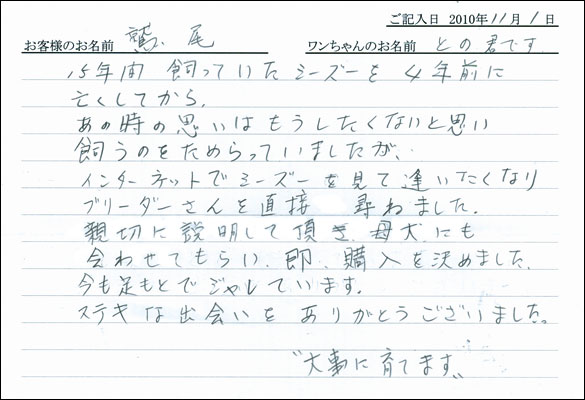 ご記入日 2010年11月1日
お客様のお名前 鷲尾 ワンちゃんのお名前 との君です
15年間 飼っていたシーズーを 4年前に
亡くしてから、
あの時の思いはもうしたくないと思い
飼うのをためらっていましたが、
インターネットでシーズーを見て逢いたくなり
ブリーダーさんを直接 尋ねました。
親切に説明して頂き、母犬にも
会わせてもらい、即、購入を決めました。
今も足もとでジャレています。
ステキな出会いを ありがとうございました。
"大事に育てます"